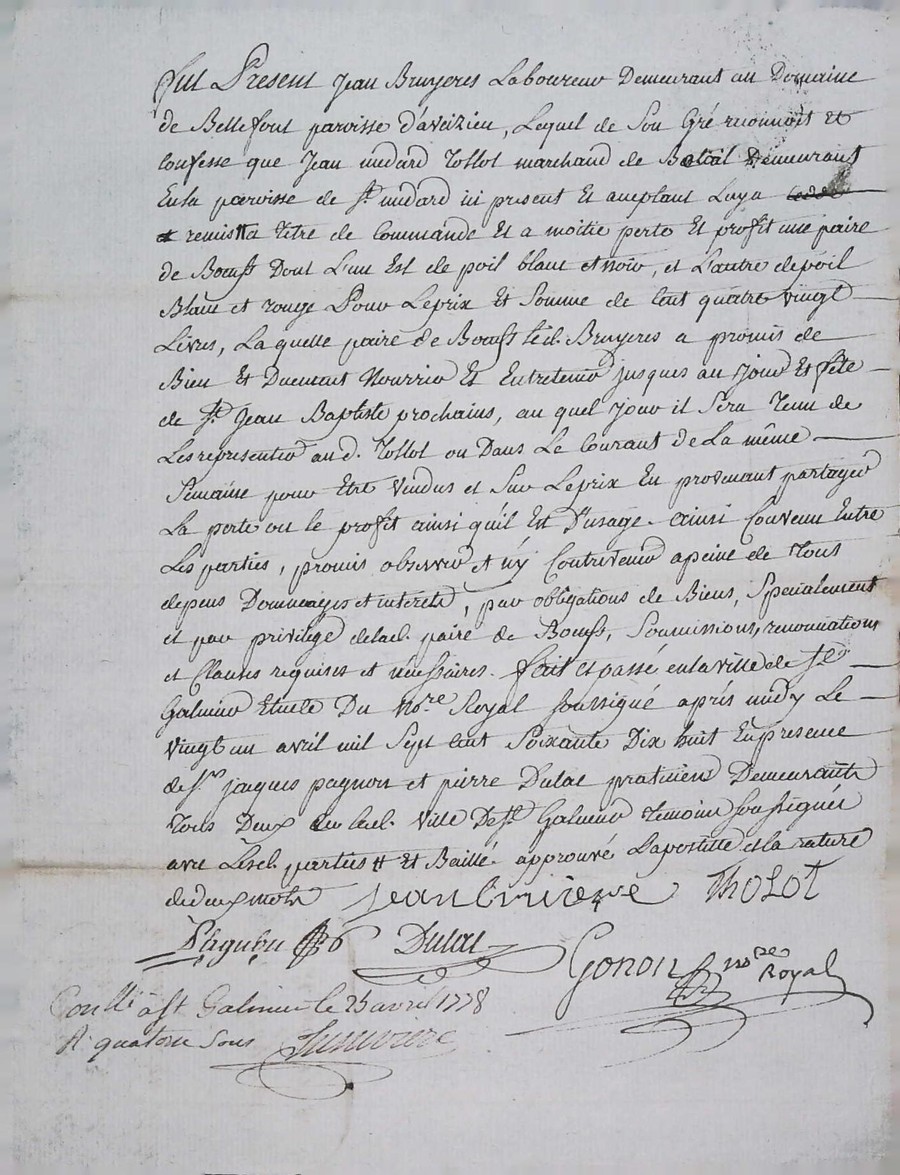 Fut Present Jean Bruyeres Laboureur Demeurant au Domaine
de Bellefont paroisse d'aveizieu, Lequel de Son Gré reconnoit Et
Confesse que Jean medard Tollot marchand de Betail Demeurant
En la paroisse de St. medard ici present Et acceptant Luy a
remis # a titre de Commande Et a moitié perte Et profit une paire
de Boeufs Dont L'un Est de poil blanc et noir, et L'autre de poil
Blanc et rouge Pour Le prix Et Somme de Cent quatre vingt
Livres, La quelle paire de Boeufs led. Bruyeres a promis de
Bien Et Duement Nourrir Et Entretenir jusques au Jour Et fête
de St. Jean Baptiste prochains, au quel Jour il Sera Tenu de
Les representer aud. Tollot ou Dans Le Courant de La même
Semaine pour Etre Vendus et Sur Le prix En provenant partager
La perte ou le profit ainsi qu'il Est D'usage. ainsi Convenu Entre
Les parties, promis observer et n'y Contrevenir a peine de Tous
depens Dommages et interets, par obligations de Biens, Specialement
et par privilége de lad. paire de Boeufs, Soumissions, renonciations
et Clauses requises et necessaires. fait et passé en la ville de St.
Galmier Etude Du Nore. Royal Soussigné aprés midy Le
vingt un avril mil Sept Cent Soixante Dix huit En presence
de Srs. jacques pagnon et pierre Dulac praticiens Demeurants
Tous Deux en lad. Ville De St. Galmier Temoins Soussignés
avec Lesd. parties # Et Baillé. approuvé L'apostille et la rature
de deux mots Jean bruiere THOLOT
Dulac
Gonon nore Royal
Conllé à St. Galmier le 25 avril 1778
R quatorze Sous